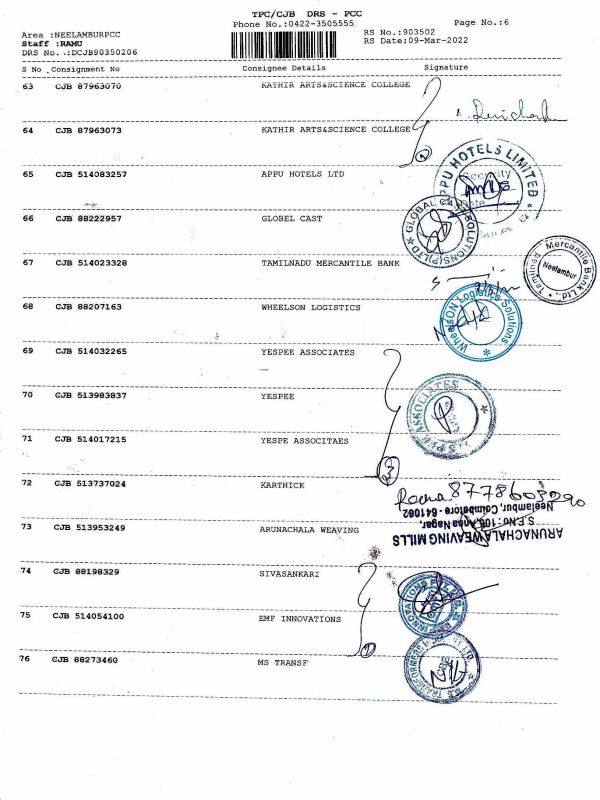 TPC/CJB DRS - PCC
Phone No.:0422-3505555
Page No.:6
Area :NEELAMBURPCC
Staff :RAMU
DRS No..:DCJB90350206
RS No.:903502
RS Date:09-Mar-2022
S No Consignment No Consignee Details Signature
63 CJB 87963070 KATHIR ARTS&SCIENCE COLLEGE
64 CJB 87963073 KATHIR ARTS&SCIENCE COLLEGE
2
65 CJB 514083257 APPU HOTELS LTD
APPU HOTELS LIMITED
Security
Date
66 CJB 88222957 GLOBEL CAST
GLOBAL CAST SOLUTIONS(P)LTD
67 CJB 514023328 TAMILNADU MERCANTILE BANK
Tamilnad Mercantile Bank Ltd.,
Neelambur
68 CJB 88207163 WHEELSON LOGISTICS
WheelsON Logistics Solutions
69 CJB 514032265 YESPEE ASSOCIATES
70 CJB 513983837 YESPEE
YESPEE ASSOCIATES
71 CJB 514017215 YESPE ASSOCITAES
3
72 CJB 513737024 KARTHICK
8778603090
73 CJB 513953249 ARUNACHALA WEAVING
ARUNACHALA WEAVING MILLS
S.F.No: 106, Anna Nagar,
Neelambur, Coimbatore - 641062
74 CJB 88198329 SIVASANKARI
75 CJB 514054100 EMF INNOVATIONS
EMF INNOVATIONS PVT LTD
76 CJB 88273460 MS TRANSF